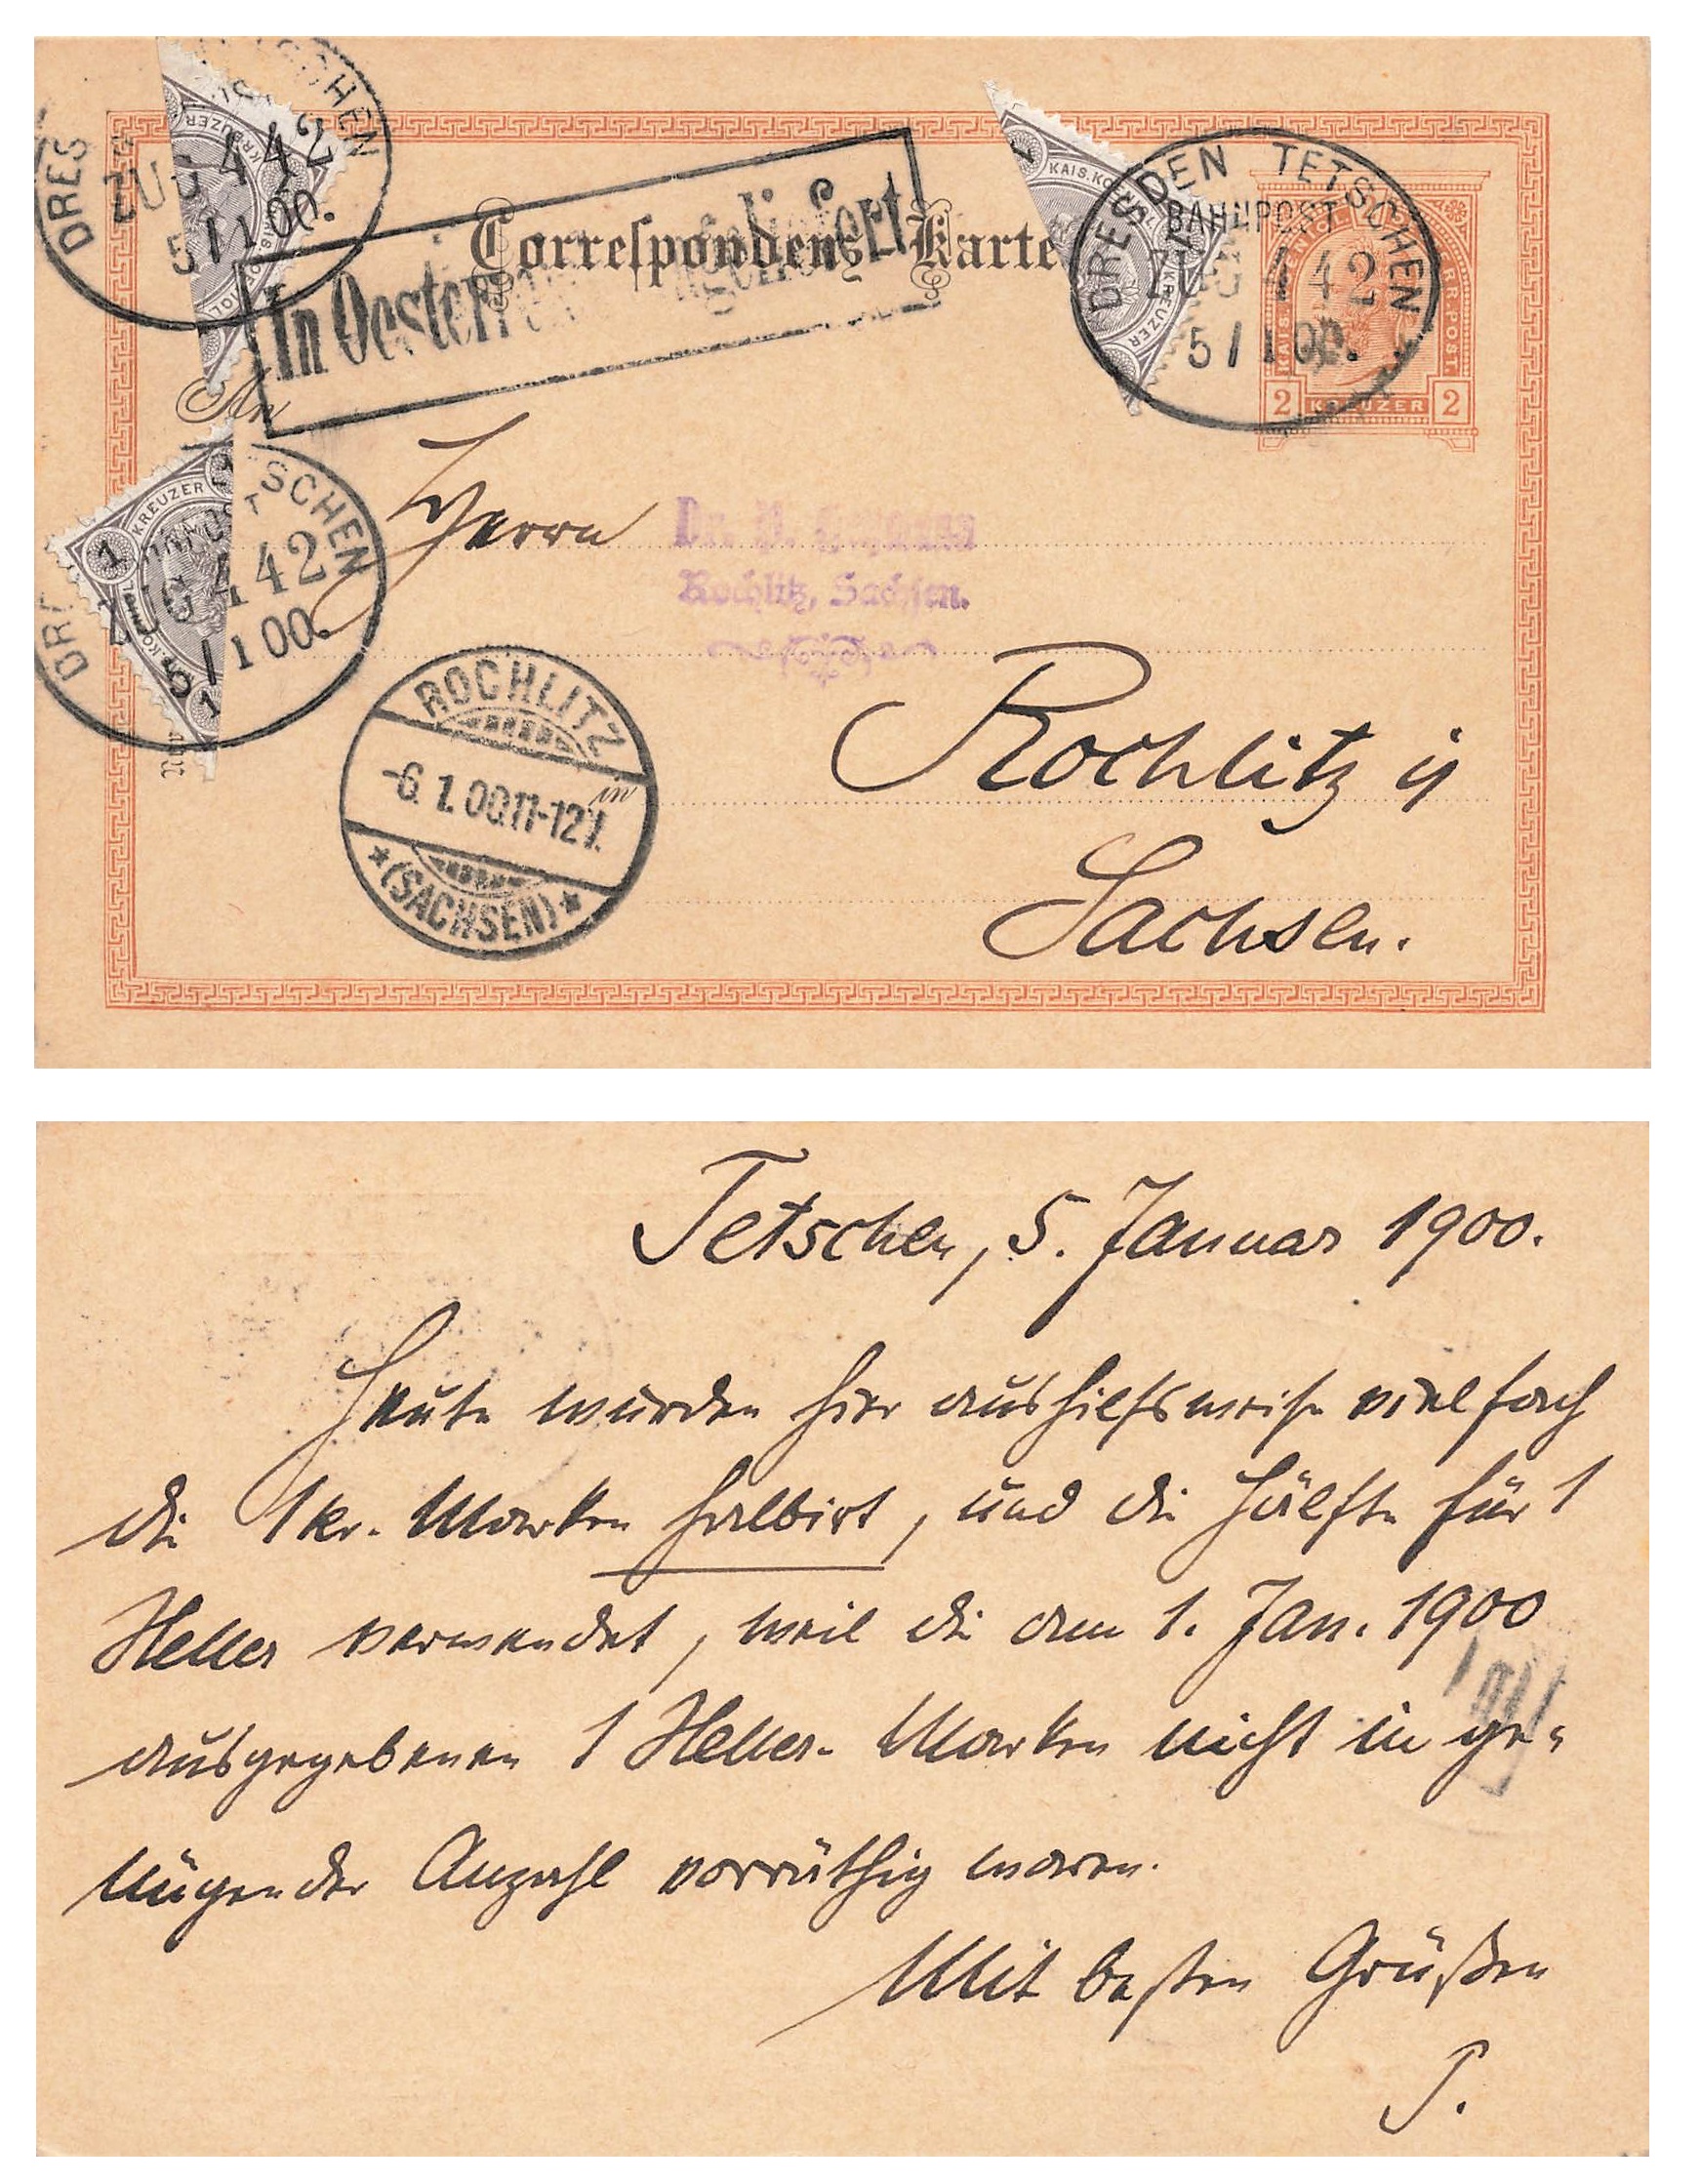 DRES SCHEN
ZUG 442
5/1 00.
KREUZER
In Oesterreich eingeliefert
Correspondenz-Karte
KAIS.KO
KREUZER
1
DRESDEN TETSCHEN
BAHNPOST
ZUG 442
5/1 00.
2 KREUZER 2
An
KREUZER
1
1
DR TSCHEN
442
5/1 00.
Herrn
Dr. P.
Rochlitz, Sachsen.
ROCHLITZ
-6.1.00.11-12V.
* (SACHSEN) *
in
Rochlitz i/
Sachsen.
Tetschen, 5. Januar 1900.
Heute wurden hier aushilfsweise vielfach
die 1kr. Marken halbirt, und die Hälfte für 1
Heller verwendet, weil die am 1. Jan. 1900
ausgegebenen 1 Heller-Marken nicht in ge-
nügender Anzahl vorräthig waren.
Mit besten Grüßen
P.